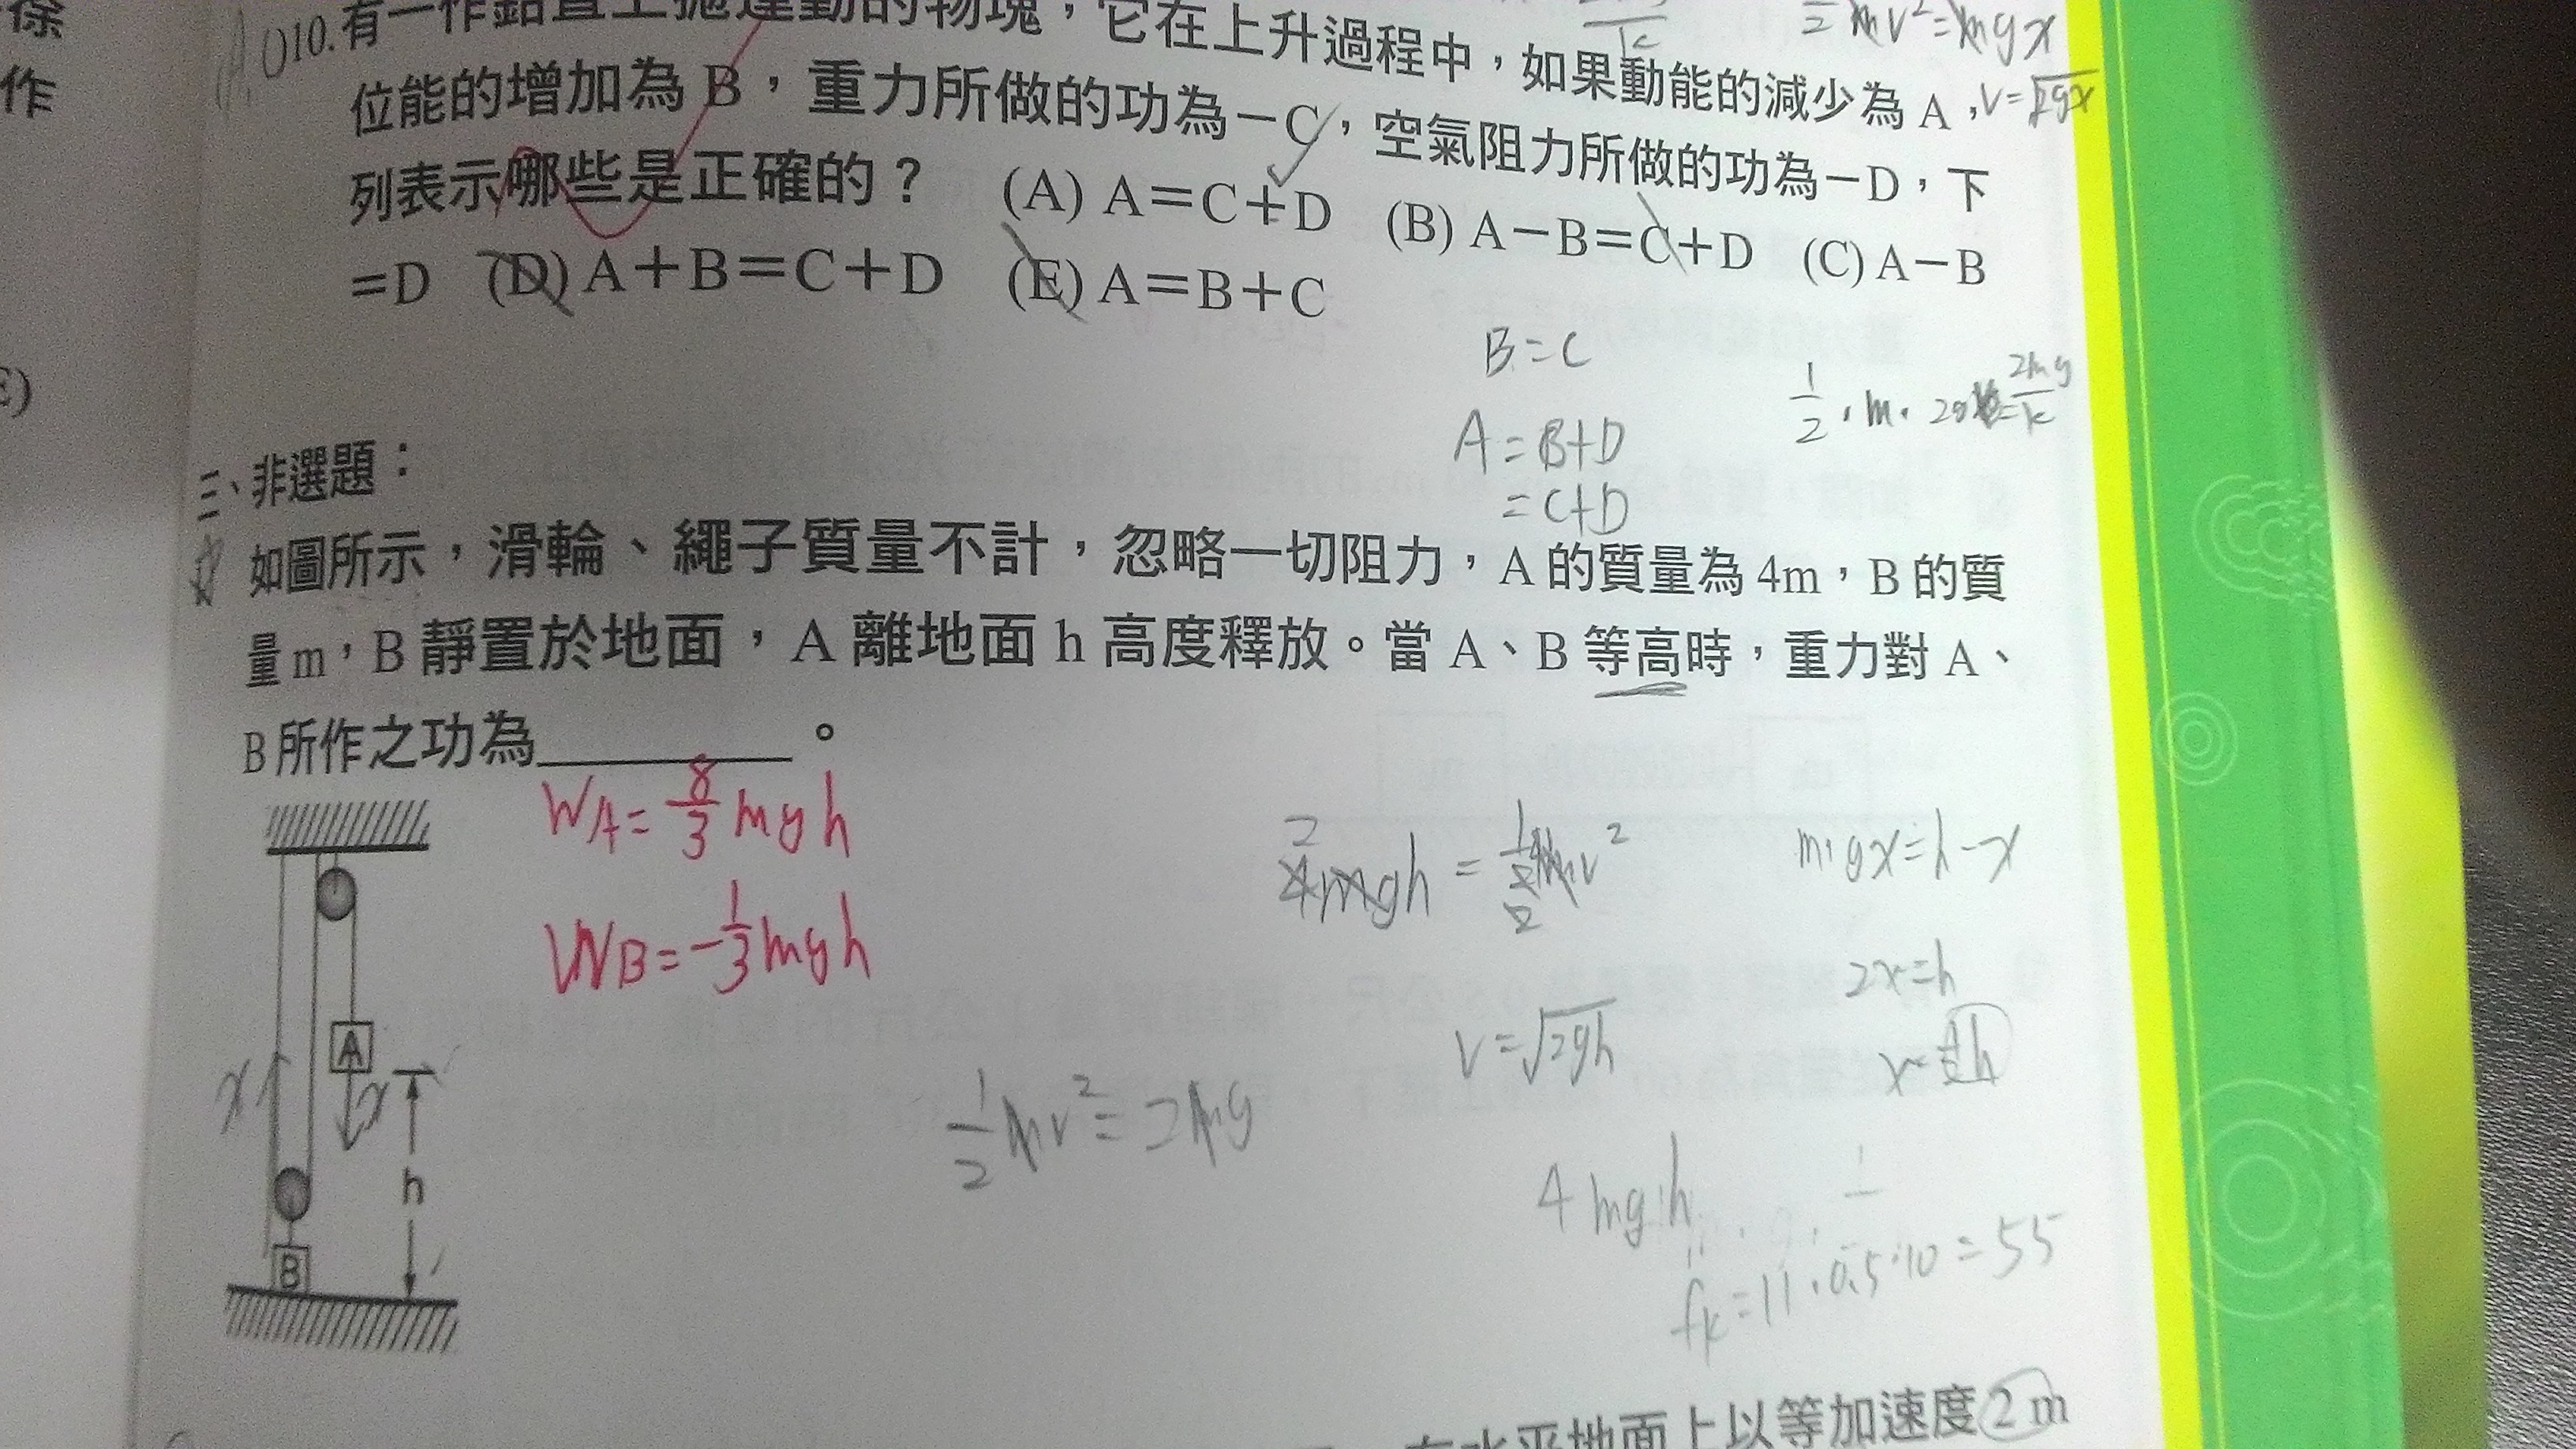 除
作
E)
()10.有一作鉛直上拋運動的物塊，它在上升過程中，如果動能的減少為 A，
位能的增加為 B，重力所做的功為－C，空氣阻力所做的功為－D，下
列表示哪些是正確的？ (A) A＝C＋D (B) A－B＝C＋D (C) A－B
＝D (D) A＋B＝C＋D (E) A＝B＋C
mv²=mgx
v=√2gx
B=C
A=B+D
=C+D
三、非選題：
如圖所示，滑輪、繩子質量不計，忽略一切阻力，A 的質量為 4m，B 的質
量 m，B 靜置於地面，A 離地面 h 高度釋放。當 A、B 等高時，重力對 A、
B 所作之功為＿＿＿＿。
W_A=8/3 mgh
W_B=-1/3 mgh
A
B
h
x
x
v=√2gh
2x=h
1/2 mv²=2mg
4mgh
fk=11·0.5·10=55
以等加速度 2 m